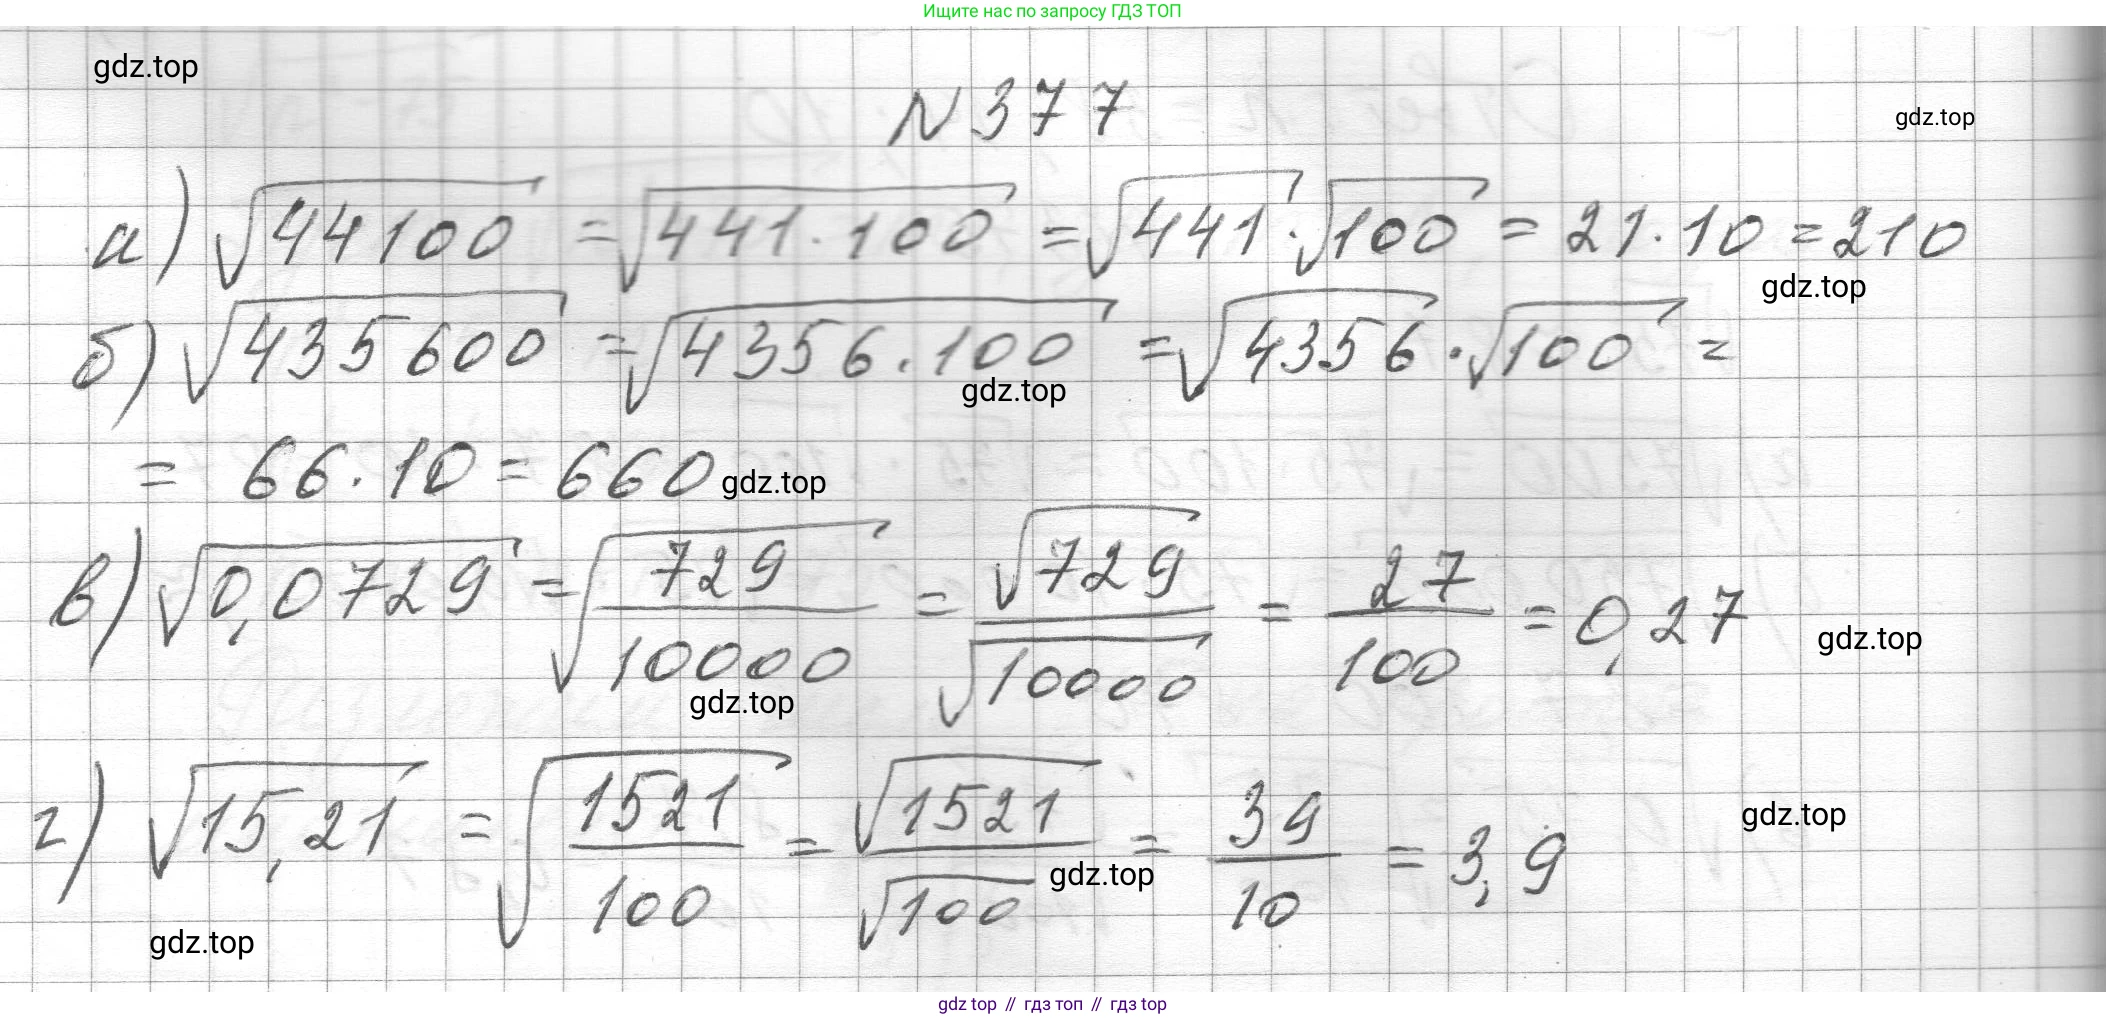 Ищите нас по запросу ГДЗ ТОП
gdz.top
N 377
gdz.top
а) √44100 = √441·100 = √441·√100 = 21·10 = 210
gdz.top
б) √435600 = √4356·100 = √4356·√100 =
gdz.top
= 66·10 = 660
gdz.top
в) √0,0729 = √729/10000 = √729/√10000 = 27/100 = 0,27
gdz.top
gdz.top
г) √15,21 = √1521/100 = √1521/√100 = 39/10 = 3,9
gdz.top
gdz.top
gdz.top
gdz top // гдз топ // гдз top